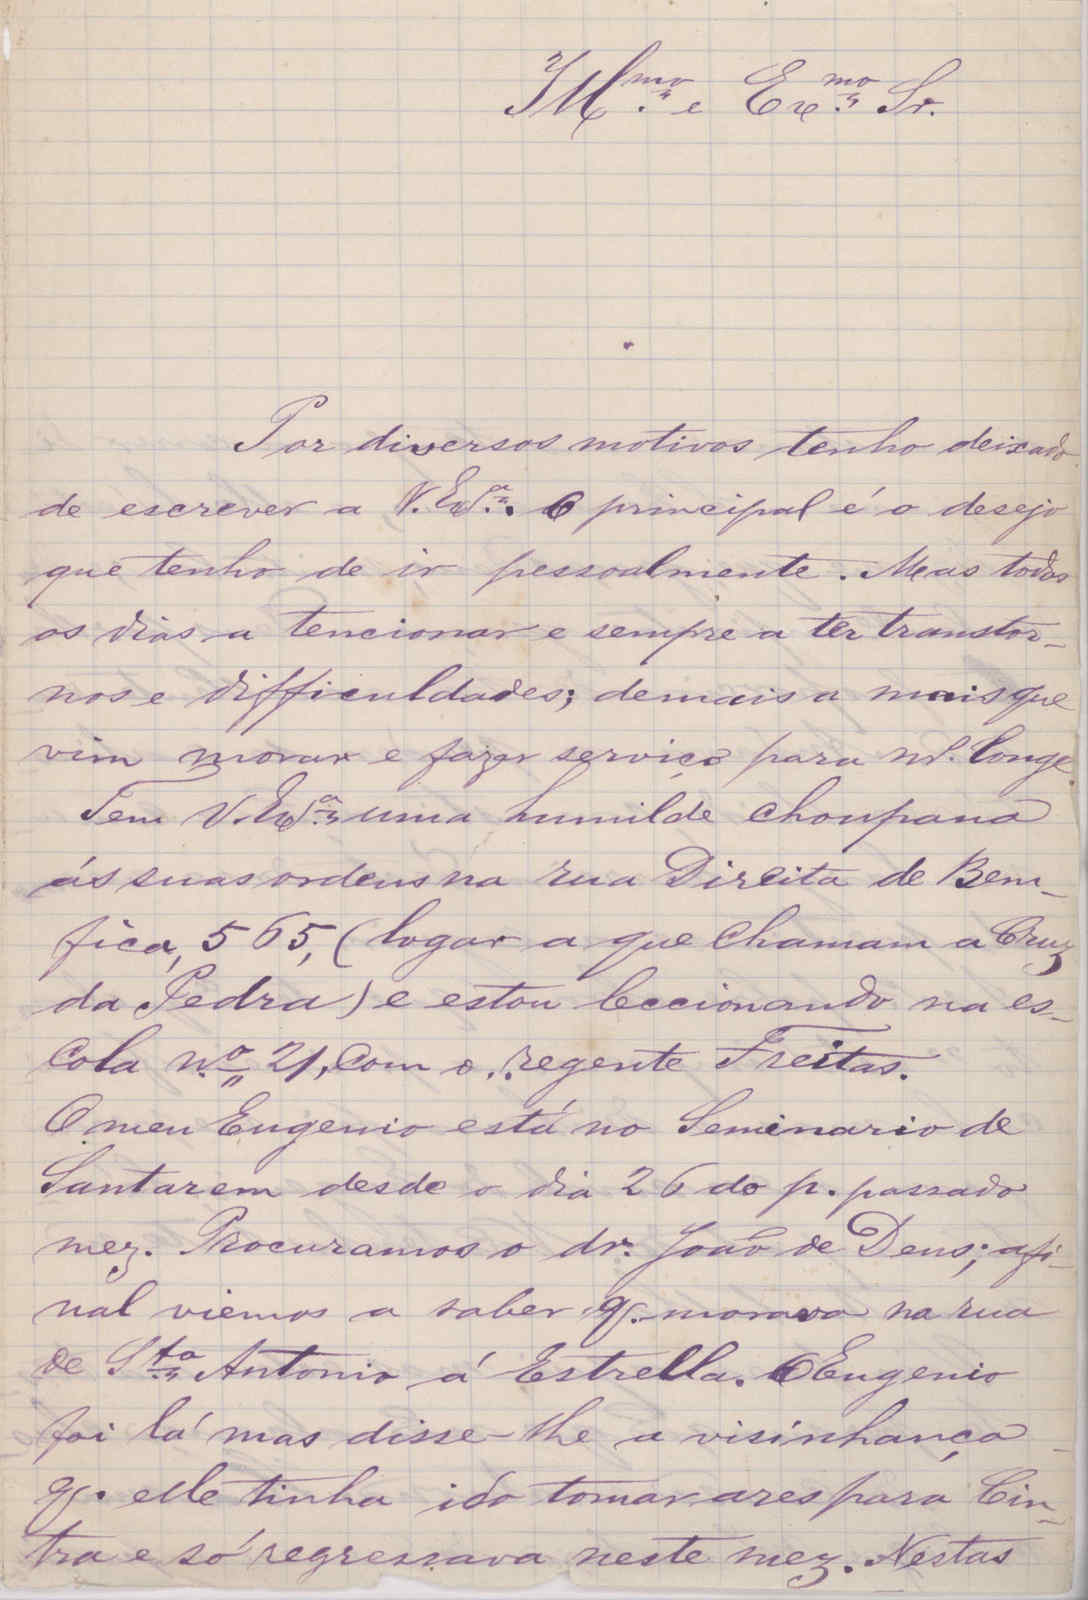 Ill.mo e Ex.mo Sr.
Por diversos motivos tenho deixado
de escrever a V. Ex.a. O principal é o desejo
que tenho de ir pessoalmente. Mas todos
os dias a tencionar e sempre a ter transtor-
nos e difficuldades; demais a mais que
vim morar e fazer serviço para longe.
Tem V. Ex.a uma humilde choupana
ás suas ordens na rua Direita de Bem-
fica, 565, (logar a que chamam a Cruz
da Pedra) e estou leccionando na es-
cola n.o 21, com o regente Freitas.
O meu Eugenio está no Seminario de
Santarem desde o dia 26 do p. passado
mez. Procuramos o dr. João de Deus; afi-
nal viemos a saber q. morava na rua
de S.to Antonio á Estrella. O Eugenio
foi lá mas disse-lhe a visinhança
q. elle tinha ido tomar ares para Cin-
tra e só regressava neste mez. Nestas